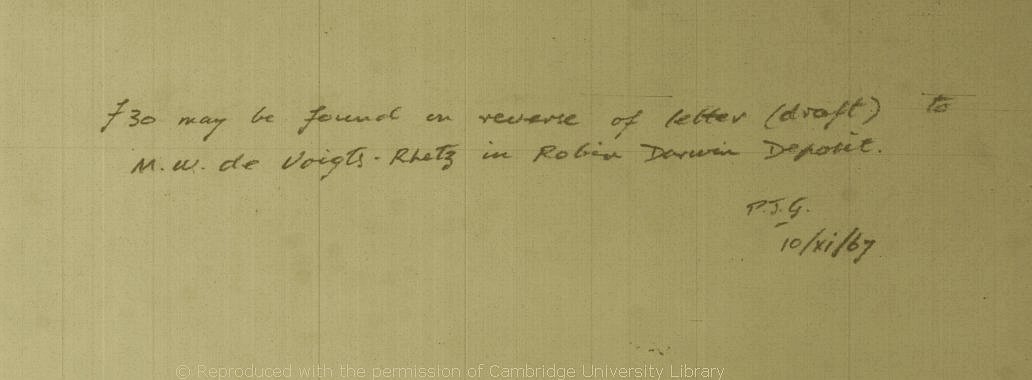 f 30 may be found on reverse of letter (draft) to
M.W. de Voigts-Rhetz in Robin Darwin Deposit.
P.J.G.
10/xi/67
© Reproduced with the permission of Cambridge University Library